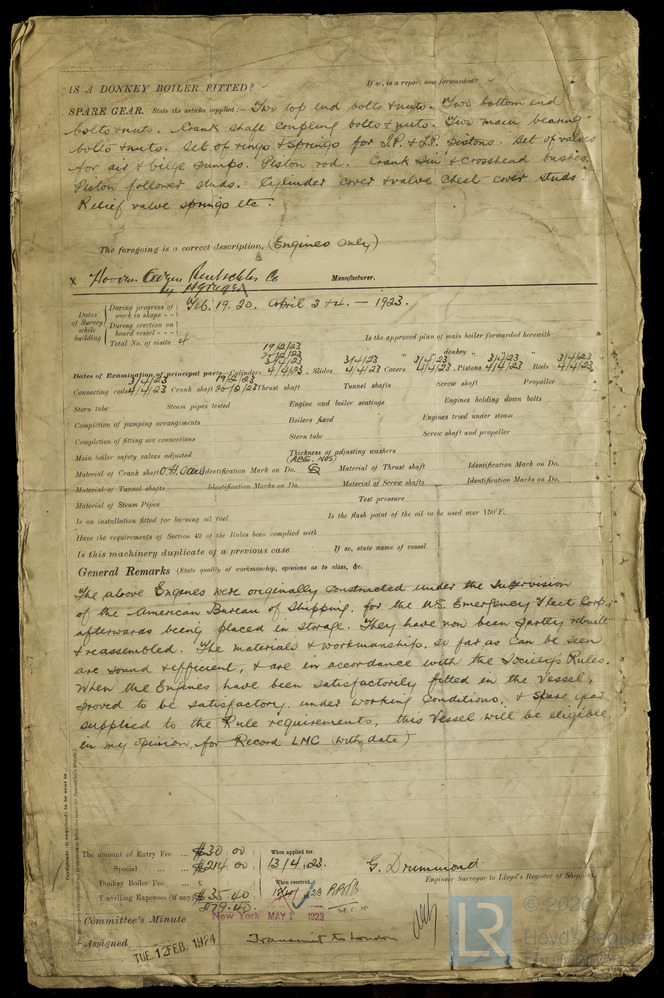 IS A DONKEY BOILER FITTED?
If so, is a report now forwarded?
SPARE GEAR. State the articles supplied:— Two top end bolts & nuts. Two bottom end
bolts & nuts. Crank shaft coupling bolts & nuts. Two main bearing
bolts & nuts. Set of rings & springs for I.P. & L.P. pistons. Set of valves
for air & bilge pumps. Piston rod. Crank pin & Crosshead bushes.
Piston follower studs. Cylinder cover & valve chest cover studs.
Relief valve springs etc.
The foregoing is a correct description, (Engines only)
x Hooven Owens Rentschler Co Manufacturer.
by
Dates of Survey while building
During progress of work in shops - -
Feb. 19. 20. April 3 & 4. — 1923.
During erection on board vessel - - -
Total No. of visits 4
Is the approved plan of main boiler forwarded herewith
" " donkey " " "
19/2/23
3/4/23
Dates of Examination of principal parts—Cylinders 4/4/23. Slides 3/4/23 4/4/23 Covers 3/4/23 4/4/23. Pistons 3/4/23 4/4/23 Rods 3/4/23 4/4/23
Connecting rods 3/4/23 4/4/23 Crank shaft 19/2/23 20/2/23 Thrust shaft Tunnel shafts Screw shaft Propeller
Stern tube Steam pipes tested Engine and boiler seatings Engines holding down bolts
Completion of pumping arrangements Boilers fixed Engines tried under steam
Completion of fitting sea connections Stern tube Screw shaft and propeller
Main boiler safety valves adjusted Thickness of adjusting washers
(ABS. NOS)
Material of Crank shaft O.H. Identification Mark on Do. Material of Thrust shaft Identification Mark on Do.
Material of Tunnel shafts Identification Marks on Do. Material of Screw shafts Identification Marks on Do.
Material of Steam Pipes Test pressure
Is an installation fitted for burning oil fuel Is the flash point of the oil to be used over 150°F.
Have the requirements of Section 49 of the Rules been complied with
Is this machinery duplicate of a previous case If so, state name of vessel
General Remarks (State quality of workmanship, opinions as to class, &c.
The above Engines were originally constructed under the Supervision
of the American Bureau of Shipping. for the U.S. Emergency Fleet Corp.,
afterwards being placed in storage. They have now been partly rebuilt
& reassembled. The materials & workmanship, so far as can be seen
are sound & efficient, & are in accordance with the Society's Rules.
When the Engines have been satisfactorily fitted in the Vessel,
proved to be satisfactory. under working conditions, & spare gear
supplied to the Rule requirements, this Vessel will be eligible,
in my opinion, for Record LMC (with date)
The amount of Entry Fee ... $30.00 When applied for,
Special ... $214.00 13/4/23.
Donkey Boiler Fee ... £ When received,
Travelling Expenses (if any) $35.40
279.40
G. Drummond
Engineer Surveyor to Lloyd's Register of Shipping.
Committee's Minute New York MAY 1 1923
Assigned Transmit to London
TUE 12 FEB. 1924
Certificate (if required) to be sent to
LR
© 2020
Lloyd's Register
Foundation